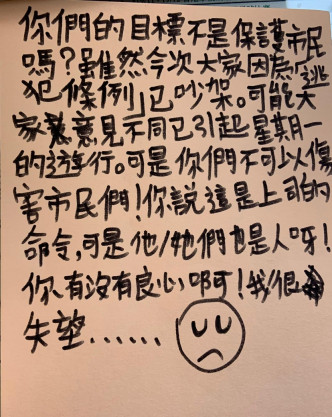 你們的目標不是保護市民
嗎？雖然今次大家因為「逃
犯條例」已吵架。可能大
家意見不同已引起星期一
的遊行。可是你們不可以傷
害市民們！你說這是上司的
命令，可是他/她們也是人呀！
你有沒有良心啊可！我很
失望......